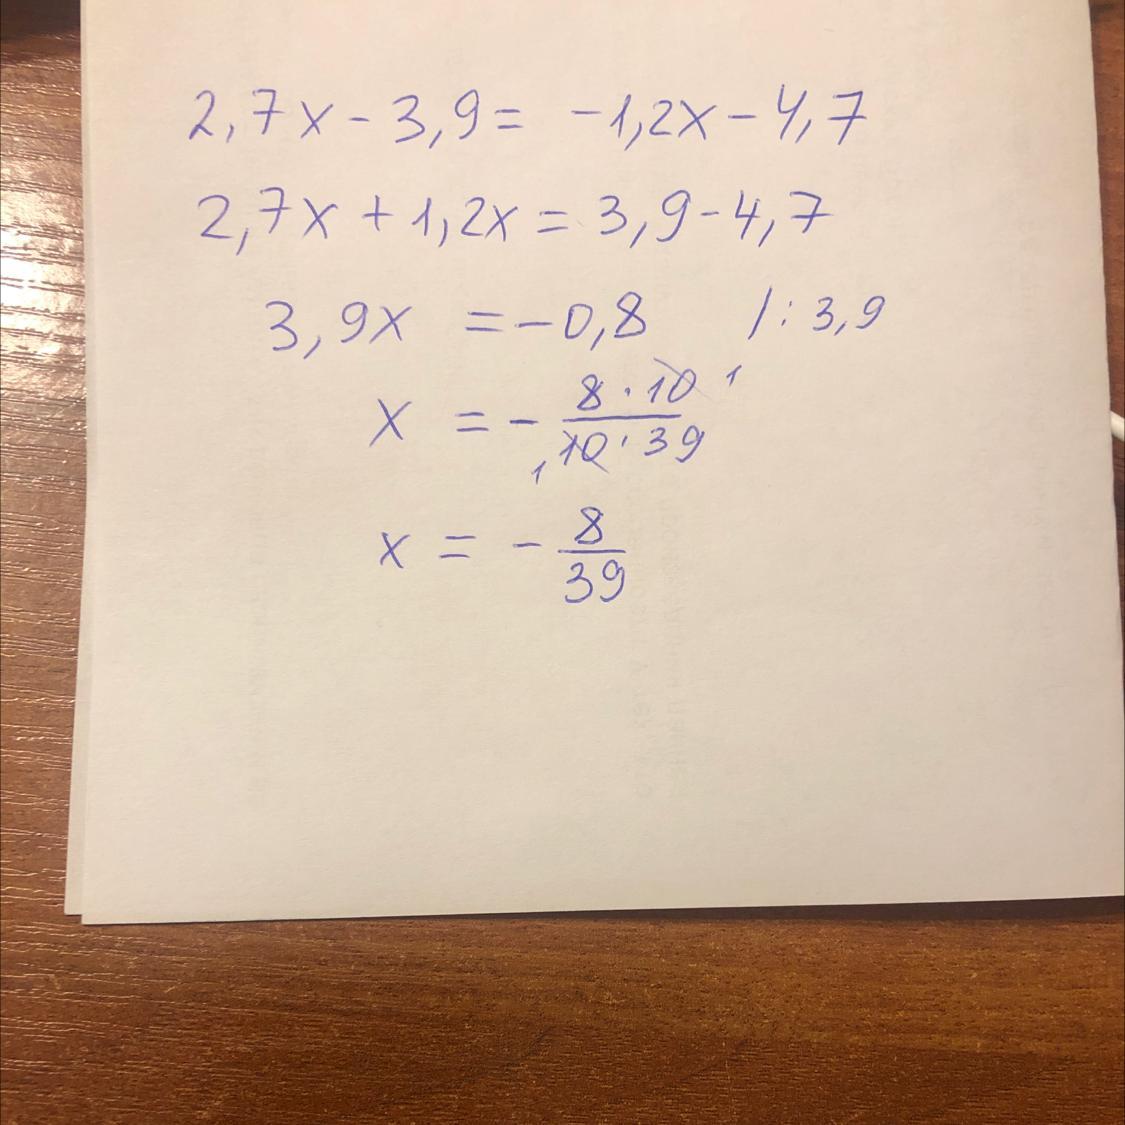 2,7x - 3,9 = -1,2x - 4,7
2,7x + 1,2x = 3,9 - 4,7
3,9x = -0,8 /: 3,9
x = - 8 · 10 1 / 1 10 · 39
x = - 8/39